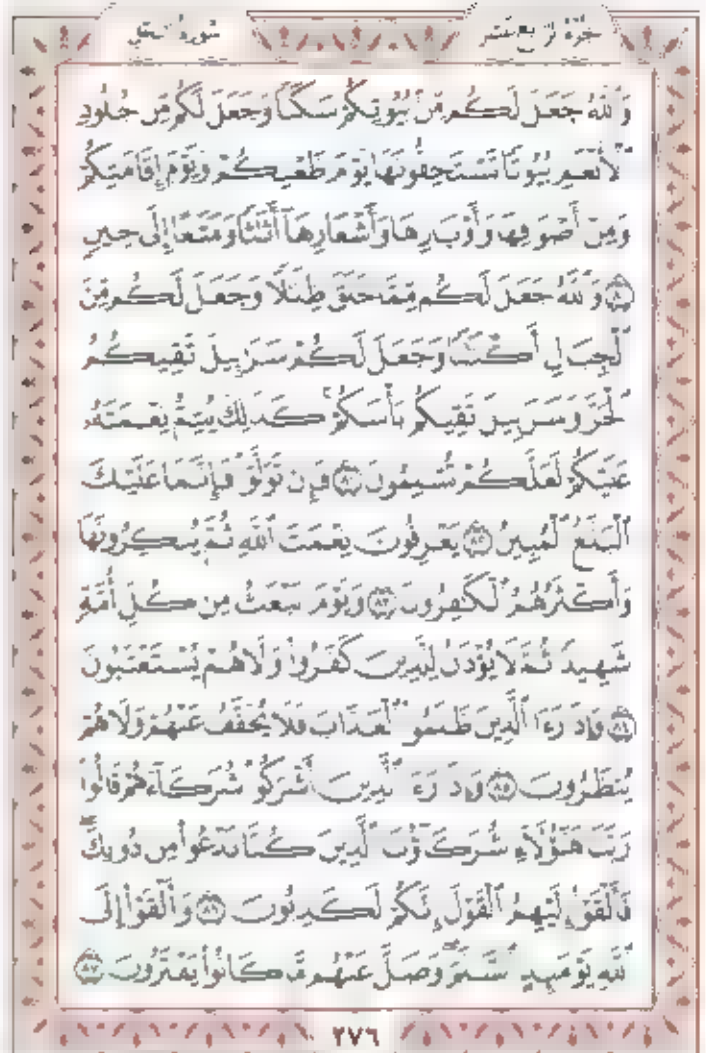 سورة النحل
الجزء الرابع عشر
وَٱللَّهُ جَعَلَ لَكُم مِّنۢ بُيُوتِكُمْ سَكَنًا وَجَعَلَ لَكُم مِّن جُلُودِ
ٱلْأَنْعَٰمِ بُيُوتًا تَسْتَخِفُّونَهَا يَوْمَ ظَعْنِكُمْ وَيَوْمَ إِقَامَتِكُمْ
وَمِنْ أَصْوَافِهَا وَأَوْبَارِهَا وَأَشْعَارِهَآ أَثَٰثًا وَمَتَٰعًا إِلَىٰ حِينٍ
٨٠ وَٱللَّهُ جَعَلَ لَكُم مِّمَّا خَلَقَ ظِلَٰلًا وَجَعَلَ لَكُم مِّنَ
ٱلْجِبَالِ أَكْنَٰنًا وَجَعَلَ لَكُمْ سَرَٰبِيلَ تَقِيكُمُ
ٱلْحَرَّ وَسَرَٰبِيلَ تَقِيكُم بَأْسَكُمْ ۚ كَذَٰلِكَ يُتِمُّ نِعْمَتَهُۥ
عَلَيْكُمْ لَعَلَّكُمْ تُسْلِمُونَ ٨١ فَإِن تَوَلَّوْا۟ فَإِنَّمَا عَلَيْكَ
ٱلْبَلَٰغُ ٱلْمُبِينُ ٨٢ يَعْرِفُونَ نِعْمَتَ ٱللَّهِ ثُمَّ يُنكِرُونَهَا
وَأَكْثَرُهُمُ ٱلْكَٰفِرُونَ ٨٣ وَيَوْمَ نَبْعَثُ مِن كُلِّ أُمَّةٍ
شَهِيدًا ثُمَّ لَا يُؤْذَنُ لِلَّذِينَ كَفَرُوا۟ وَلَا هُمْ يُسْتَعْتَبُونَ
٨٤ وَإِذَا رَءَا ٱلَّذِينَ ظَلَمُوا۟ ٱلْعَذَابَ فَلَا يُخَفَّفُ عَنْهُمْ وَلَا هُمْ
يُنظَرُونَ ٨٥ وَإِذَا رَءَا ٱلَّذِينَ أَشْرَكُوا۟ شُرَكَآءَهُمْ قَالُوا۟
رَبَّنَا هَٰٓؤُلَآءِ شُرَكَآؤُنَا ٱلَّذِينَ كُنَّا نَدْعُوا۟ مِن دُونِكَ ۖ
فَأَلْقَوْا۟ إِلَيْهِمُ ٱلْقَوْلَ إِنَّكُمْ لَكَٰذِبُونَ ٨٦ وَأَلْقَوْا۟ إِلَى
ٱللَّهِ يَوْمَئِذٍ ٱلسَّلَمَ ۖ وَضَلَّ عَنْهُم مَّا كَانُوا۟ يَفْتَرُونَ ٨٧
٢٧٦